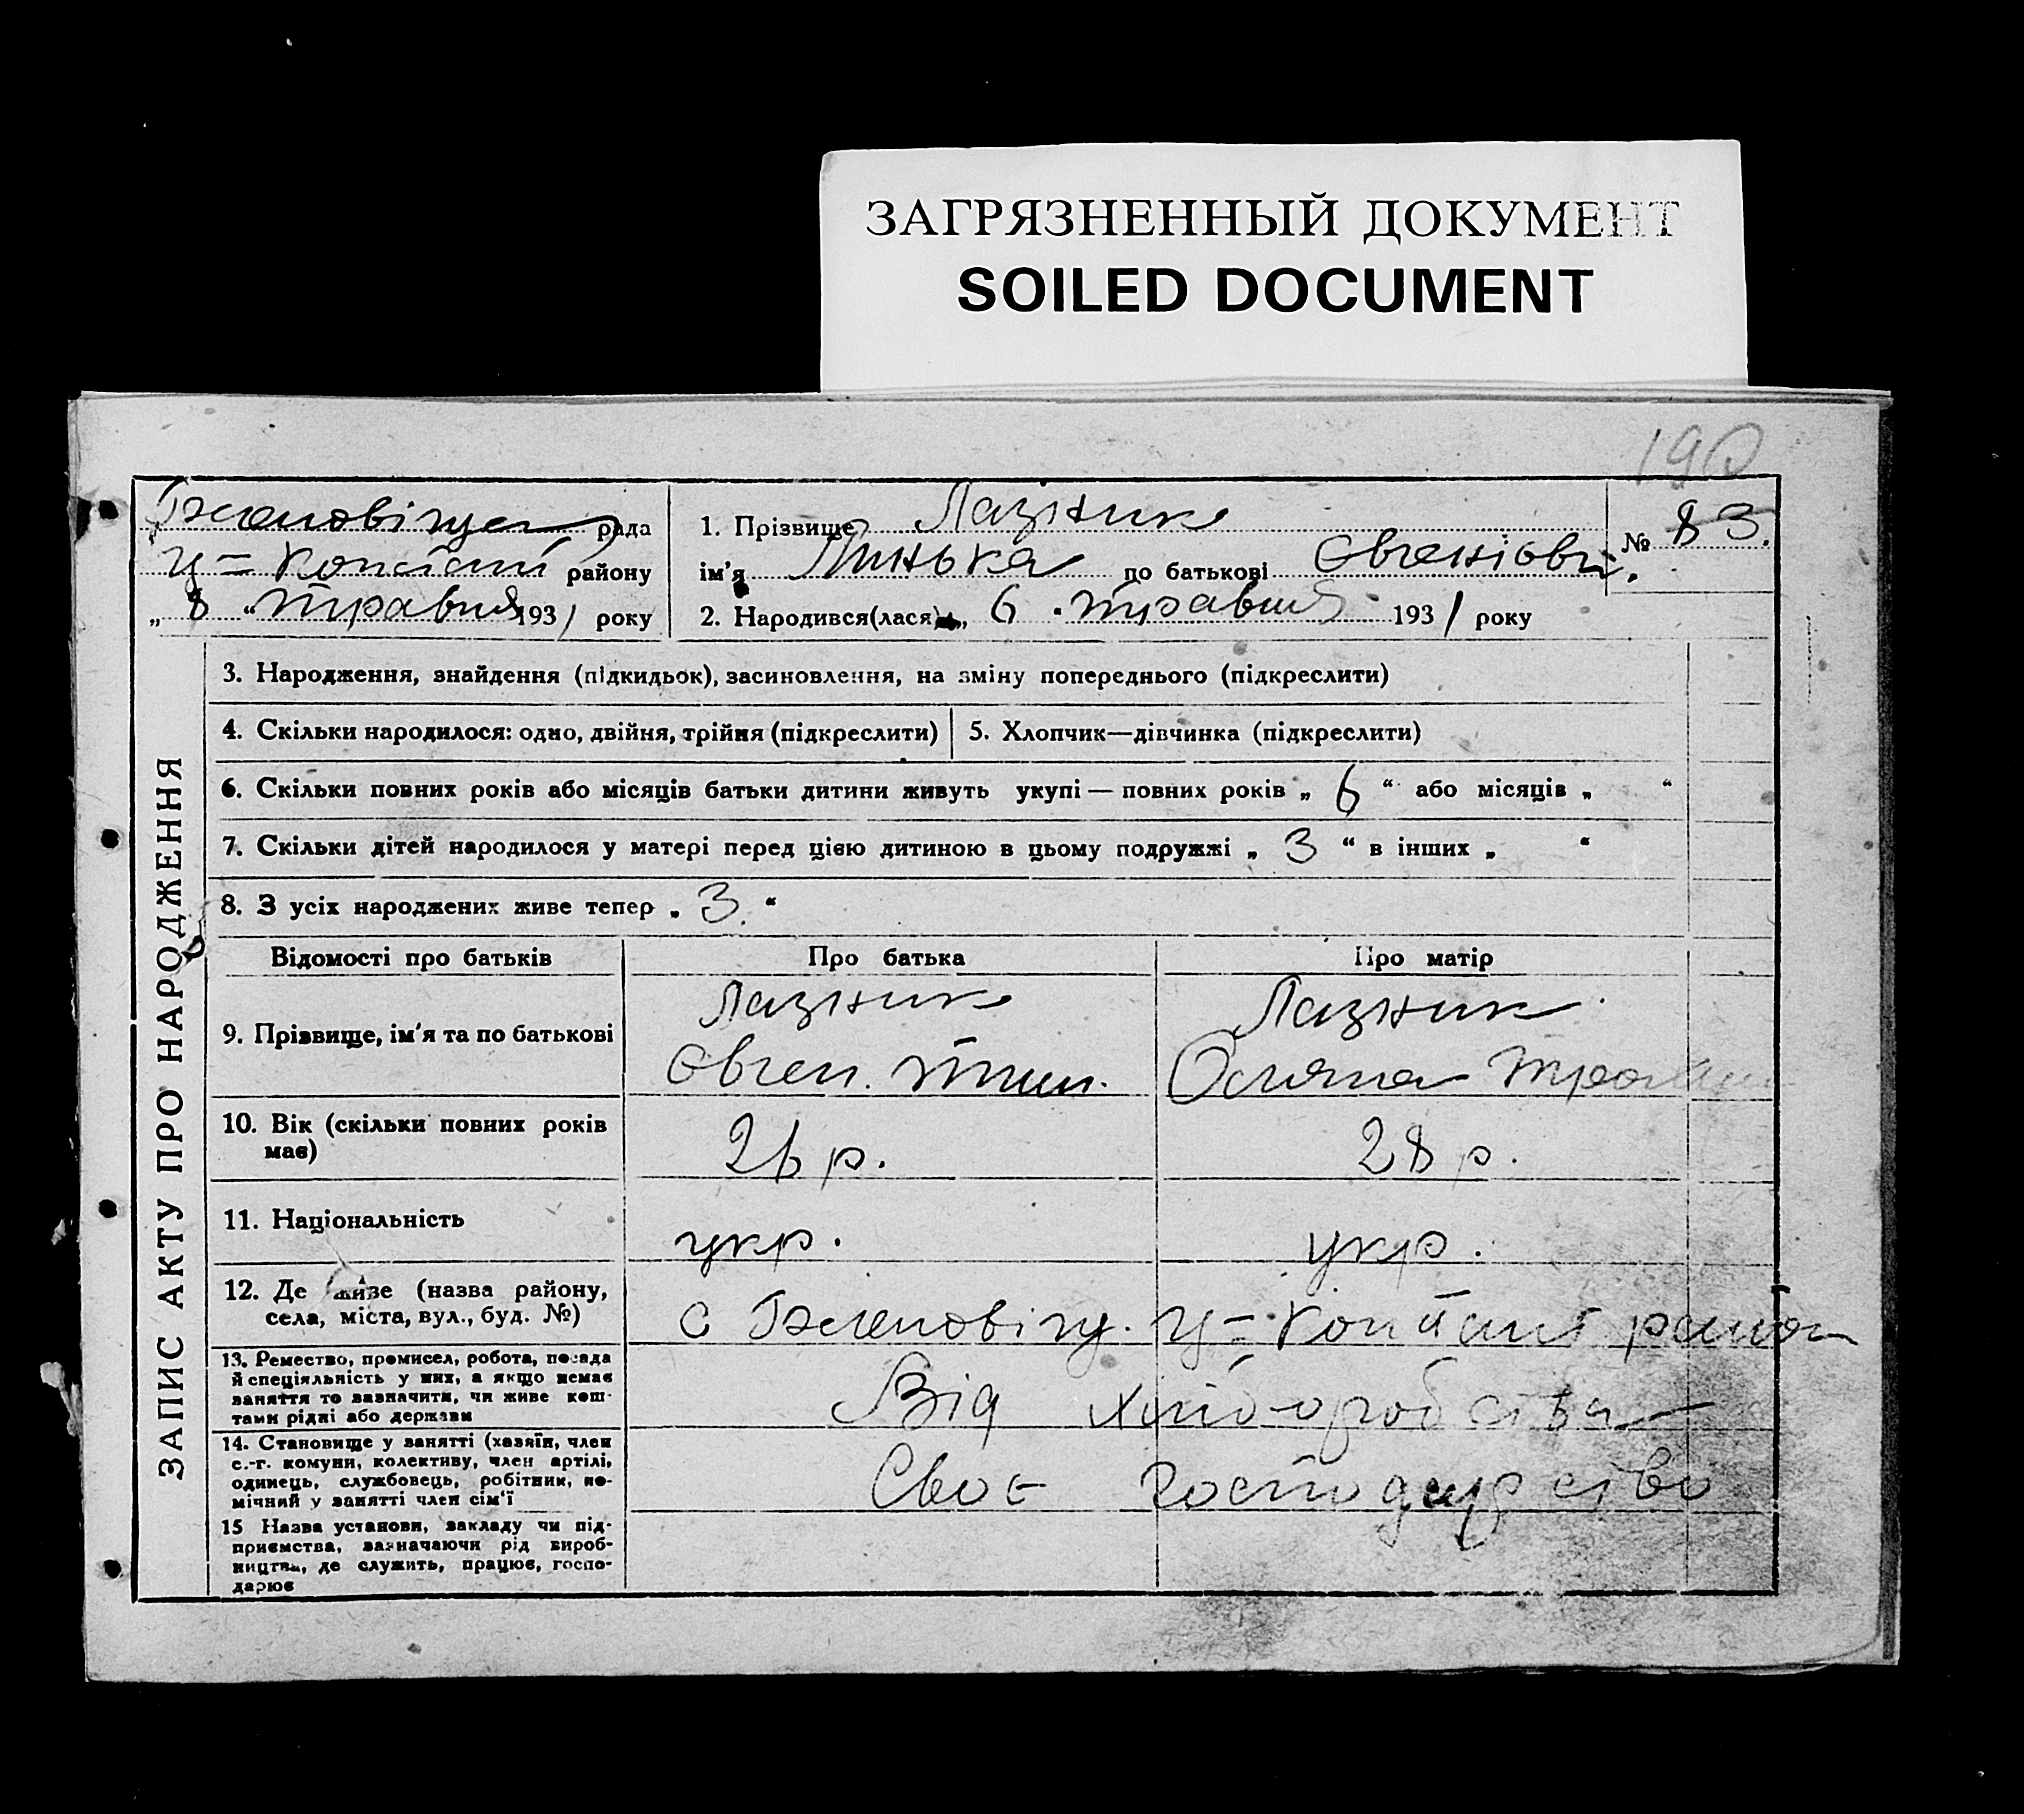 ЗАГРЯЗНЕННЫЙ ДОКУМЕНТ
SOILED DOCUMENT
190
рада
району
„ 8 “ травня 1931 року
1. Прізвище Лазник
ім'я Минька по батькові Євгенієвич.
2. Народився(лася) „ 6 “ травня 1931 року
№ 83.
ЗАПИС АКТУ ПРО НАРОДЖЕННЯ
3. Народження, знайдення (підкидьок), засиновлення, на зміну попереднього (підкреслити)
4. Скільки народилося: одно, двійня, трійня (підкреслити)
5. Хлопчик—дівчинка (підкреслити)
6. Скільки повних років або місяців батьки дитини живуть укупі — повних років „ 6 “ або місяців „ “
7. Скільки дітей народилося у матері перед цією дитиною в цьому подружжі „ 3 “ в інших „ “
8. З усіх народжених живе тепер „ 3. “
Відомості про батьків
Про батька
Про матір
9. Прізвище, ім'я та по батькові
Лазник
Євген.
Лазник
10. Вік (скільки повних років
має)
26 р.
28 р.
11. Національність
укр.
укр.
12. Де живе (назва району,
села, міста, вул., буд. №)
с
13. Ремество, промисел, робота, посада
й спеціяльність у них, а якщо немає
заняття то зазначити, чи живе кош-
тами рідні або держави
Від хліборобства
14. Становище у занятті (хазяїн, член
с.-г. комуни, колективу, член артілі,
одинець, службовець, робітник, по-
мічний у занятті член сім'ї
Своє господарство
15 Назва установи, закладу чи під-
приємства, зазначаючи рід вироб-
ництва, де служить, працює, госпо-
дарює